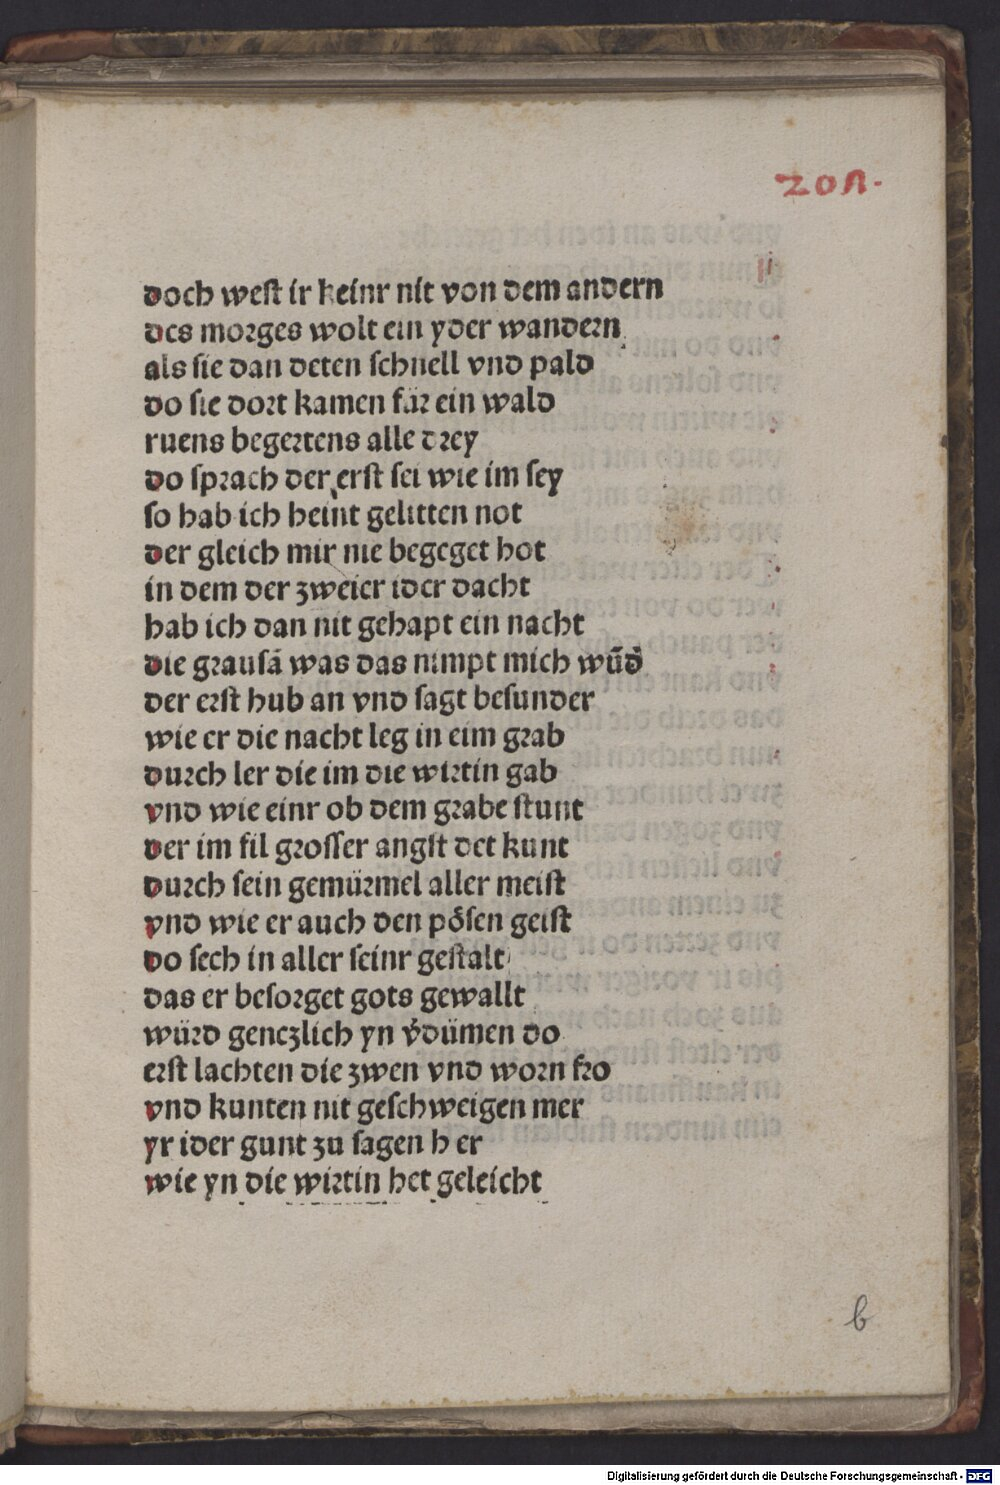 201.
doch weſt ir keinr nit von dem andern
des morges wolt ein yder wandern
als ſie dan deten ſchnell vnd pald
do ſie dort kamen für ein wald
ruens begertens alle drey
do ſprach der erſt ſei wie im ſey
ſo hab ich heint gelitten not
der gleich mir nie begeget hot
in dem der zweier ider dacht
hab ich dan nit gehapt ein nacht
die grauſā was das nimpt mich wūd̕
der erſt hub an vnd ſagt beſunder
wie er die nacht leg in eim grab
durch ler die im die wirtin gab
vnd wie einr ob dem grabe ſtunt
der im fil groſſer angſt det kunt
durch ſein gemürmel aller meiſt
vnd wie er auch den pöſen geiſt
do ſech in aller ſeinr geſtalt
das er beſorget gots gewallt
würd genczlich yn v̕dümen do
erſt lachten die zwen vnd worn fro
vnd kunten nit geſchweigen mer
yr ider gunt zu ſagen h er
wie yn die wirtin het geleicht
b
Digitalisierung gefördert durch die Deutsche Forschungsgemeinschaft - DFG